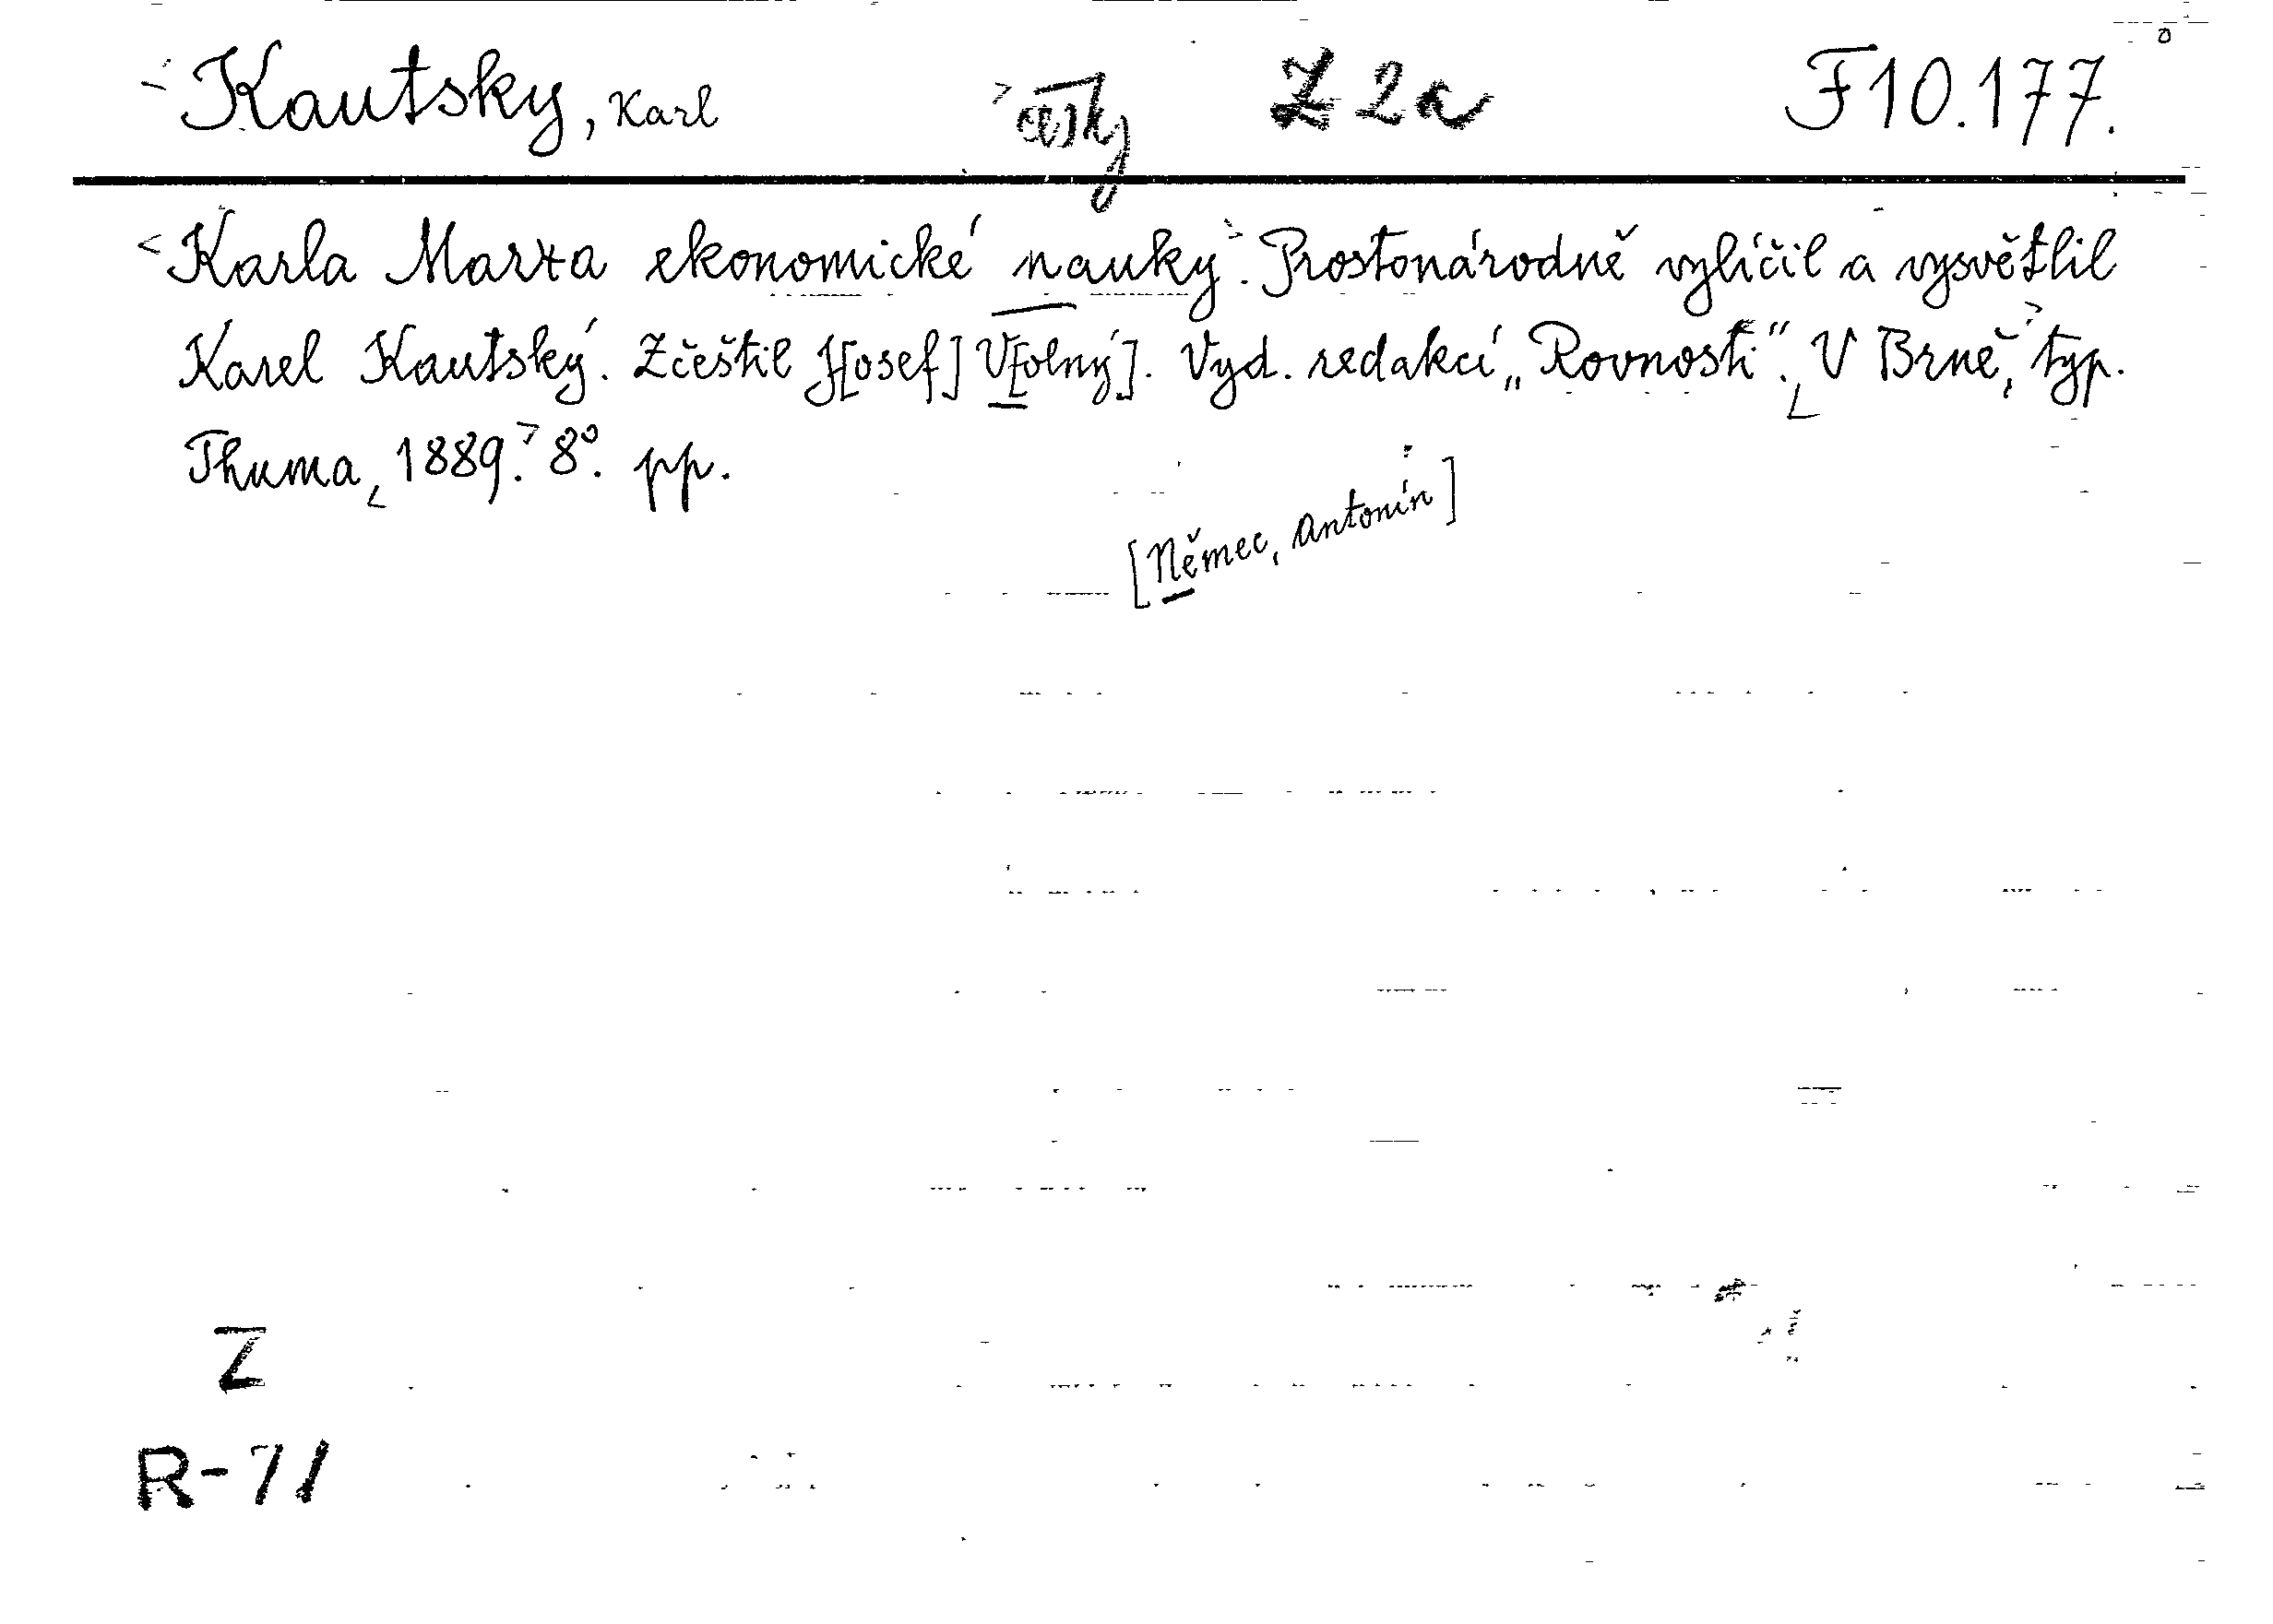 Kautsky, Karl česky Z 2a F10.177.
<Karla Marxa ekonomické nauky>. Prostonárodně vylíčil a vysvětlil
Karel Kautský. Zčeštil J[osef] V[olný]. Vyd. redakcí „Rovnosti“. V Brně, typ.
Thuma, 1889. 8°. pp.
[Němec, Antonín]
Z
R-71